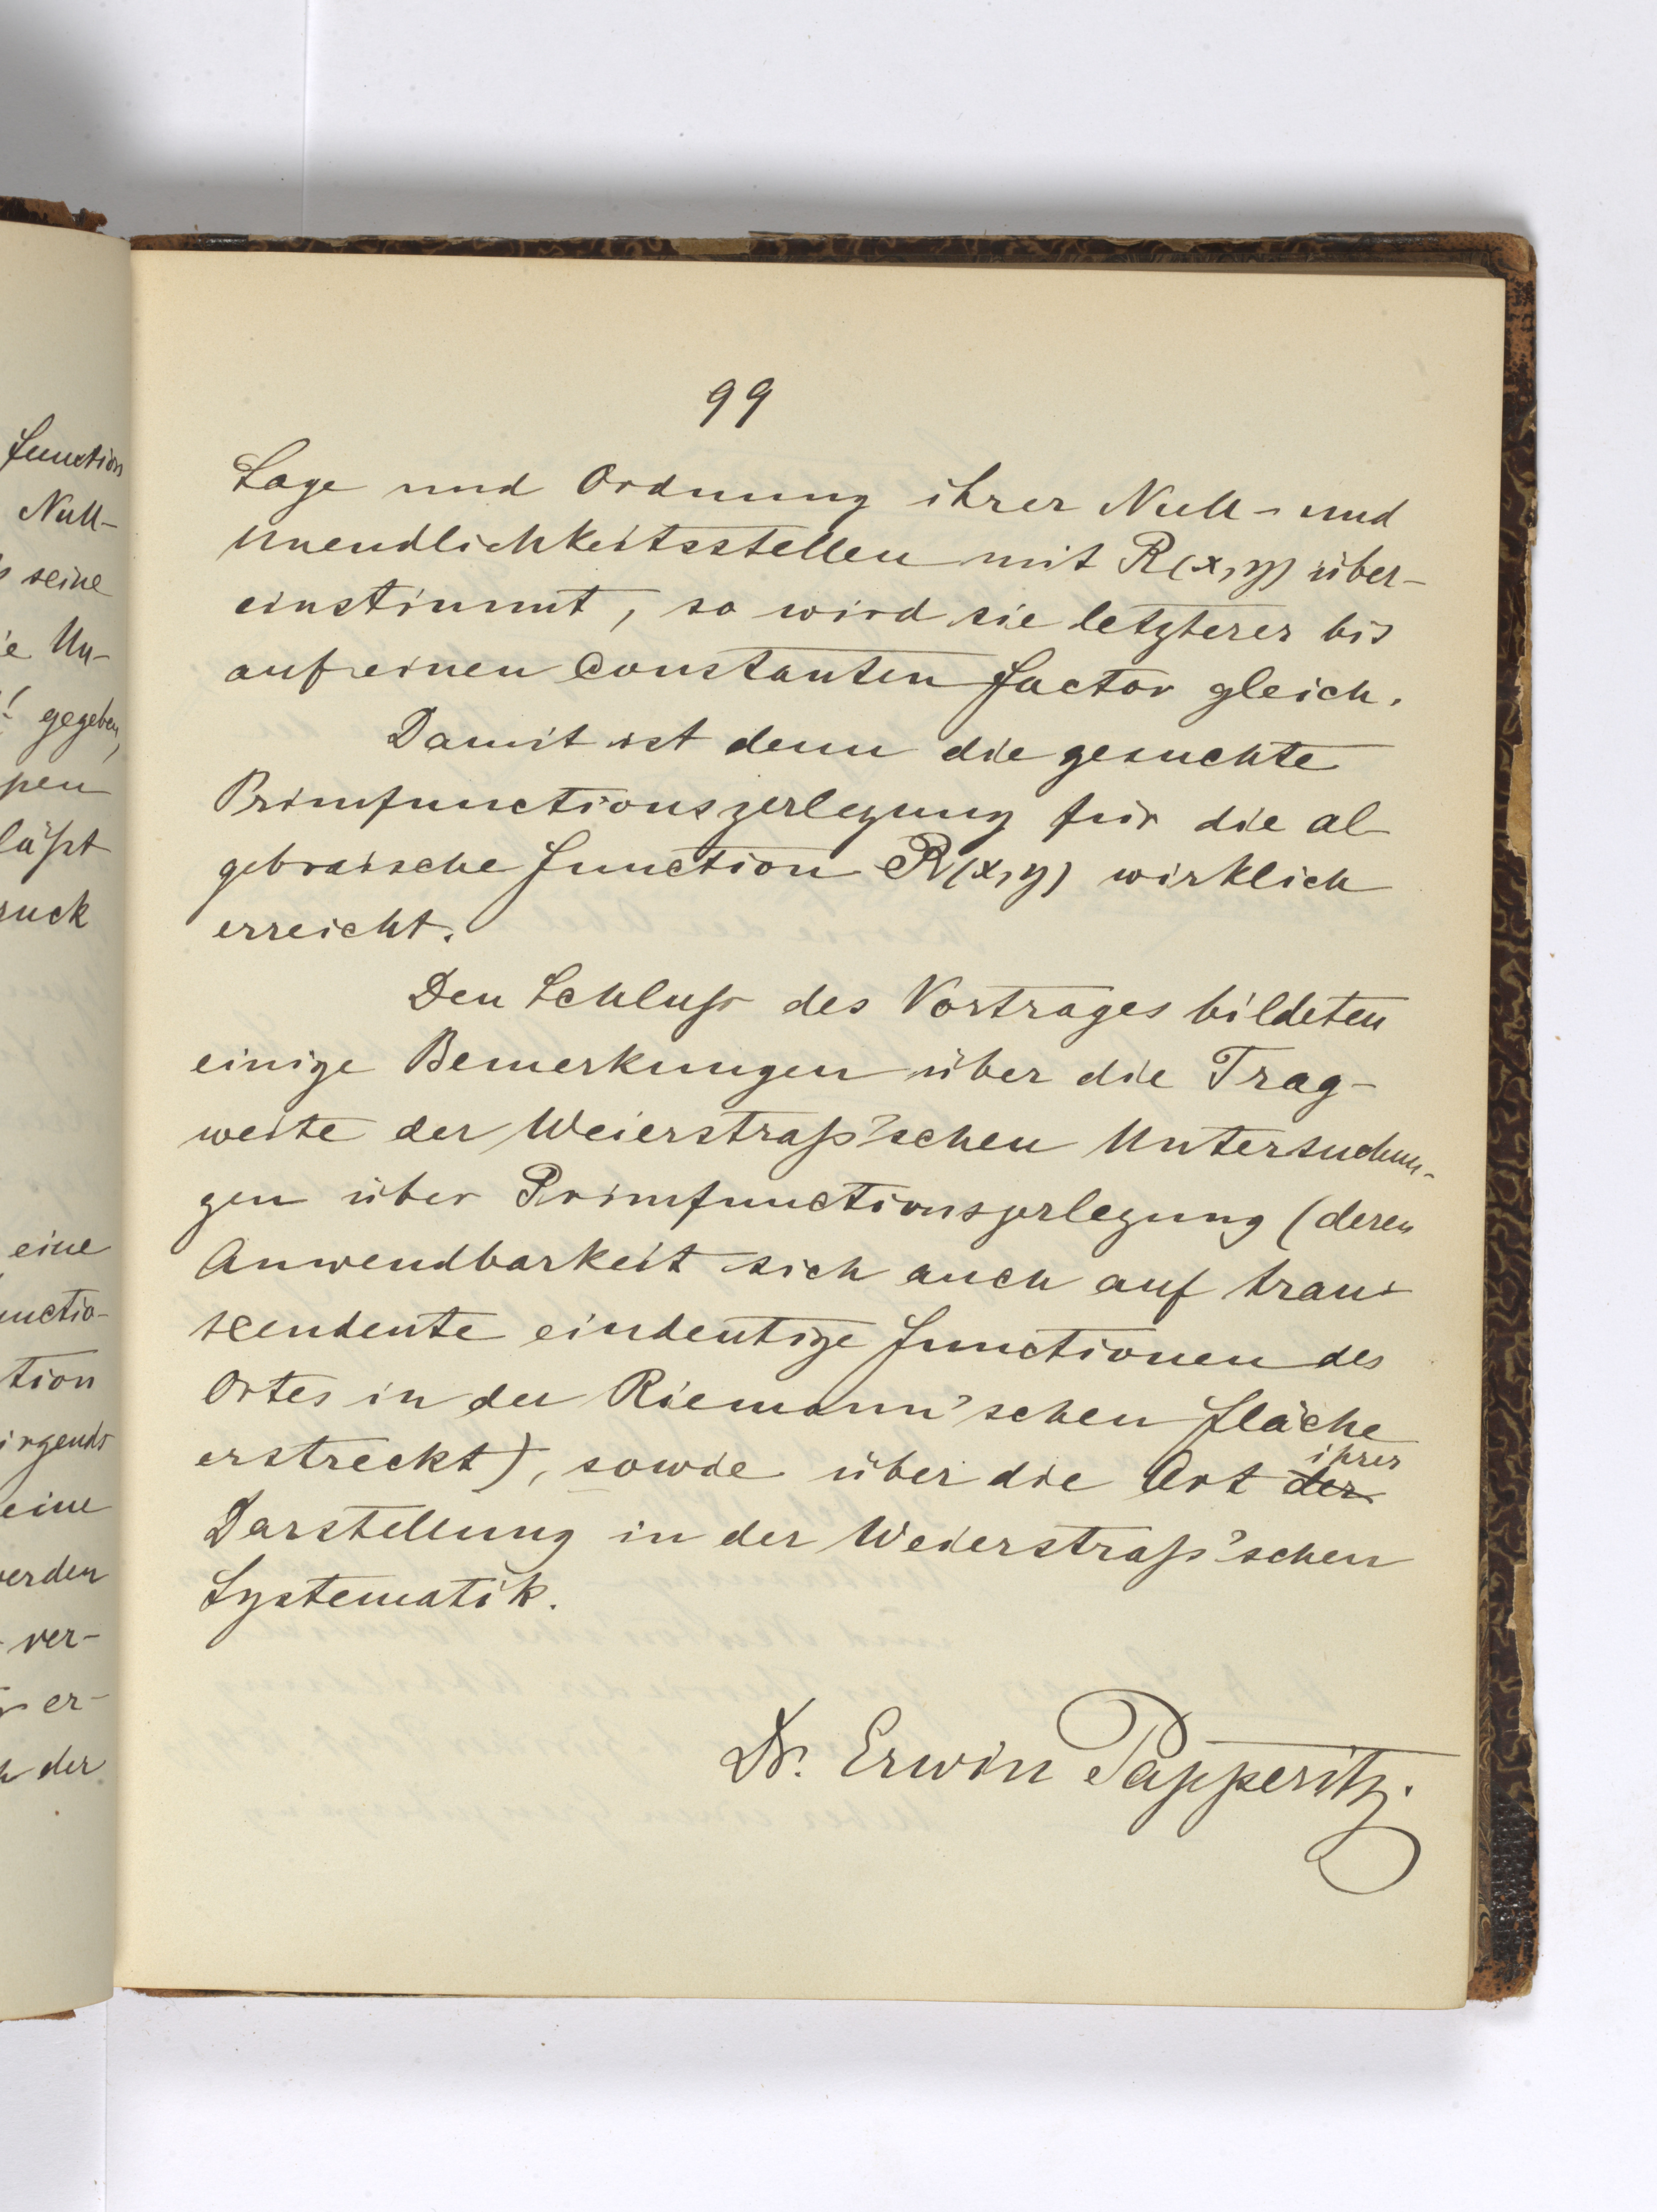 function
Null-
seine
ie Un-
gegeben,
pen
läßt
ruck
eine
unctio-
tion
irgends
eine
werden
ver-
er-
der
99
Lage und Ordnung ihrer Null- und
Unendlichkeitsstellen mit R(x,y) über-
einstimmt, so wird sie letzterer bis
auf einen constanten Factor gleich.
Damit ist denn die gesuchte
Primfunctionszerlegung für die al-
gebraische Function R(x,y) wirklich
erreicht.
Den Schluß des Vortrages bildeten
einige Bemerkungen über die Trag-
weite der Weierstraß'schen Untersuchun-
gen über Primfunctionszerlegung (deren
Anwendbarkeit sich auch auf trans-
scendente eindeutige Functionen des
Ortes in der Riemann'schen Fläche
erstreckt), sowie über die Art der ihrer
Darstellung in der Weierstraß'schen
Systematik.
Dr. Erwin Papperitz.